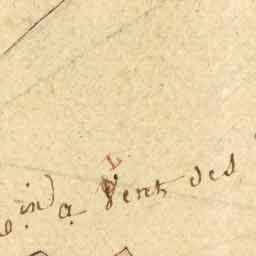 L
in) a Vent des